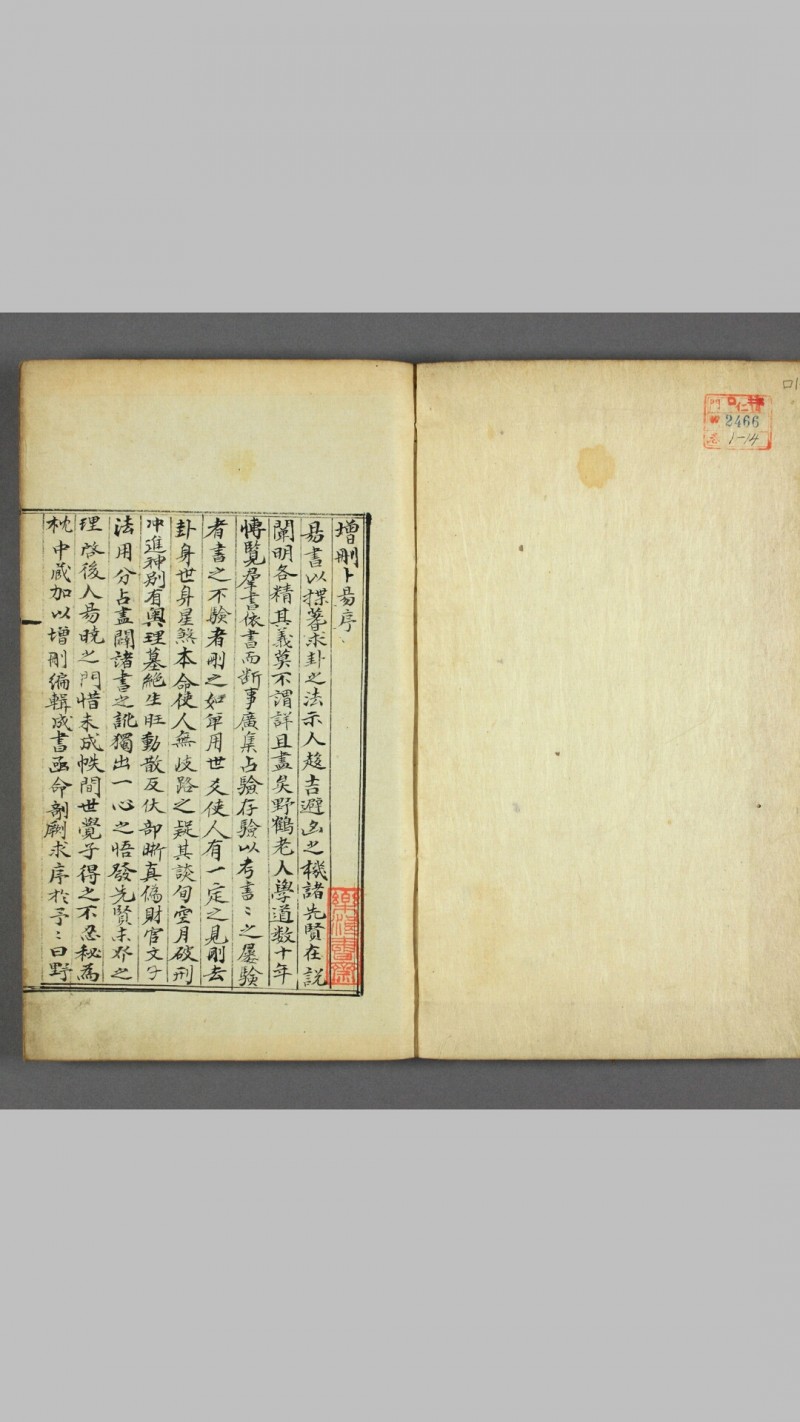 増刪卜易序
易書以揲蓍求卦之法示人趨吉避凶之機諸先賢在説
闡明各精其義莫不謂詳且盡矣野鶴老人學道数十年
博覧羣書依書而断事廣集占驗存驗以考書〻之屡驗
者書之不驗者刪之如單用世爻使人有一定之見刪去
卦身世身星煞本命使人無歧路之疑其談旬空月破刑
冲進神别有奥理墓絶生旺動散反伏部晰真偏財官文子
法用分占盡闢諸書之訛獨出一心之悟發先賢未發之
理啓後人易曉之門惜未成帙間世覺子得之不忍秘為
枕中藏加以增刪編輯成書函命剞劂求序於予〻曰野
2466
1-14